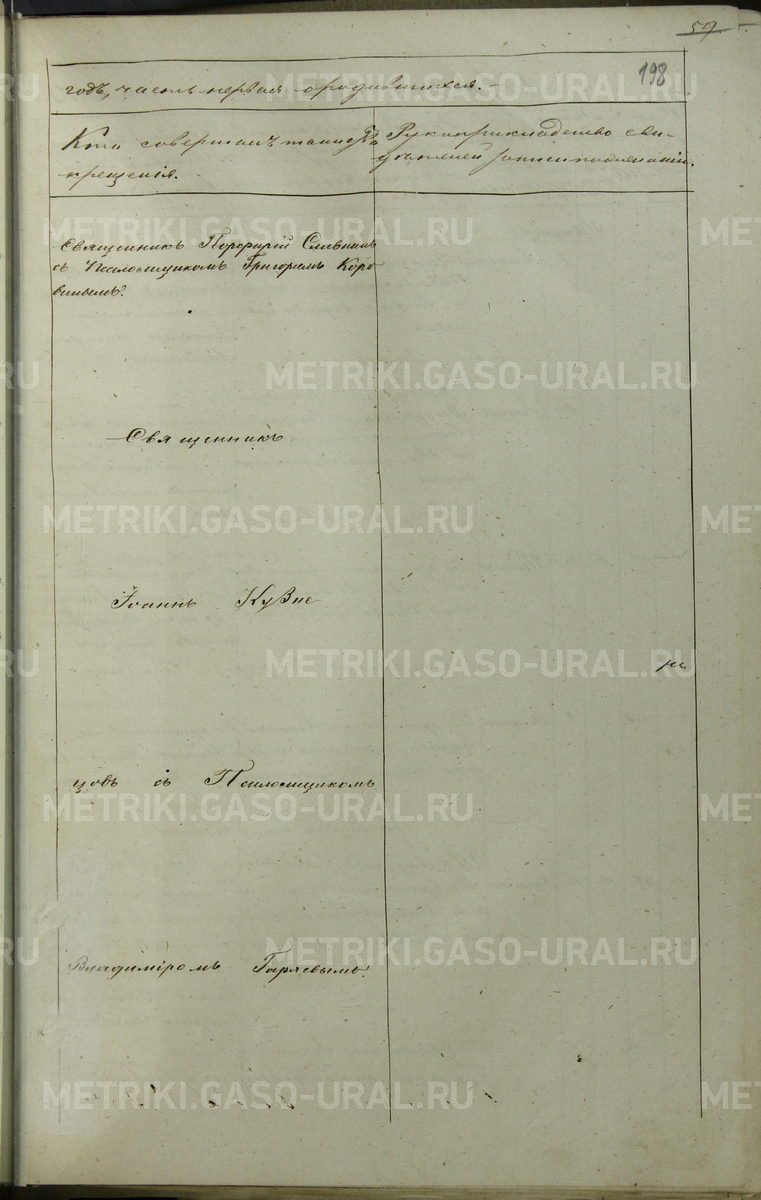 57
198
годъ, часть первая о родившихся.
Кто совершалъ таинство
крещенія.
Рукоприкладство сви-
дѣтелей записи по желанію.
Священникъ Порфирій Славнинъ
съ Псаломщикомъ Григоріемъ Коро-
винымъ.
Священникъ
Іоаннъ Кузне-
цовъ съ Псаломщикомъ
Владиміромъ Гаряевымъ.
METRIKI.GASO-URAL.RU